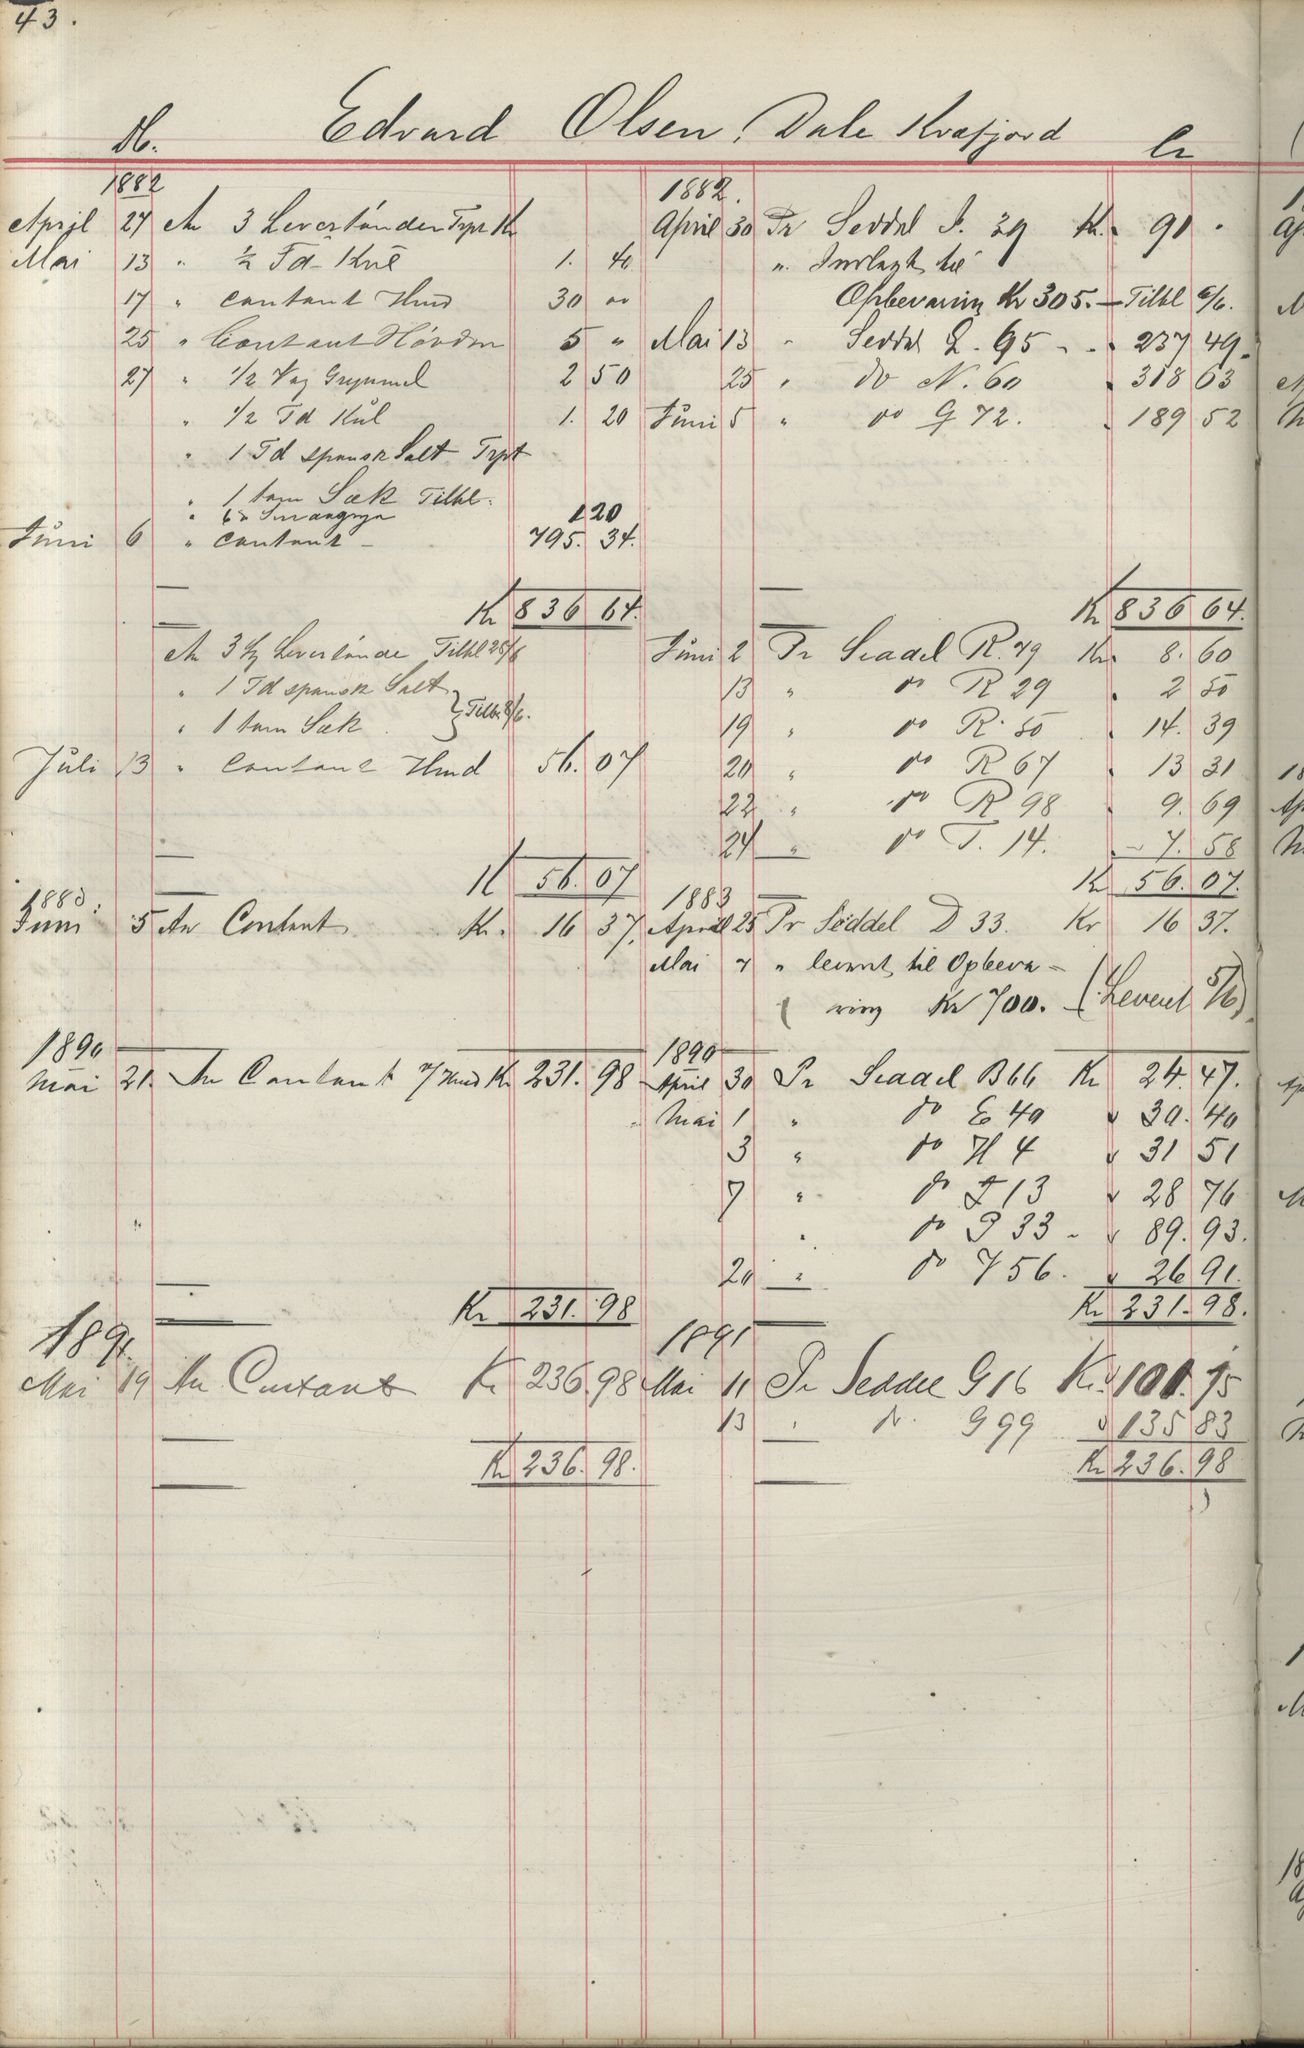 43.
Edvard Olsen, Dale Kvæfjord
Db. Cr
1882
April 27 An 3 Levertönder Trpt Kr
Mai 13 " ½ Td Kul 1. 40
17 " Contant Hmd 30 "
25 " Contant Hövdm 5 "
27 " ½ Vog Grynmel 2 50
" ½ Td Kul 1. 20
" 1 Td spansk Salt Trpt
" 1 tom Sæk Tilbl.
" 1 20
Juni 6 " Contant 795. 34.
Kr 836 64.
An 3 Levertönde Tilbl 25/6
" 1 Td spansk Salt
" 1 tom Sæk } Tilb. 8/6.
Juli 13 " Contant Hmd 56. 07
Kr 56. 07
1883.
Juni 5 An Contant Kr. 16 37.
1890
Mai 21. An Contant Hmd Kr 231. 98
Kr 231. 98
1891.
Mai 19 An Contant Kr 236. 98
Kr 236. 98.
1882.
April 30 Pr Seddel I. 39 Kr. 91 "
" Indlagt til
Opbevaring Kr 305. — Tilbl 6/6.
Mai 13 " Seddel L. 95 " 237 49.
25 " do N. 60 " 318 63
Juni 5 " do Q 72. " 189 52
Kr 836 64.
Juni 2 Pr Seddel R. 79 Kr. 8. 60
13 " do R 29 " 2 50
19 " do R. 50 " 14. 39
20 " do R 67 " 13 31
22 " do R 98 " 9. 69
24 " do T. 14. " 7. 58
Kr 56. 07.
1883
April 25 Pr Seddel D 33. Kr 16 37.
Mai 7 " leveret til Opbeva-
ring Kr 700. — (Leveret 5/6)
1890
April 30 Pr Seddel B 66 Kr 24. 47.
Mai 1 " do E 40 " 30. 40
3 " do H 4 " 31 51
7 " do I 13 " 28 76
" do P 33 - " 89. 93.
20 " do Y 56. " 26 91.
Kr 231. 98.
1891
Mai 11 Pr Seddel G 16 Kr. 101. 15
13 " do. G 99 " 135 83
Kr 236. 98